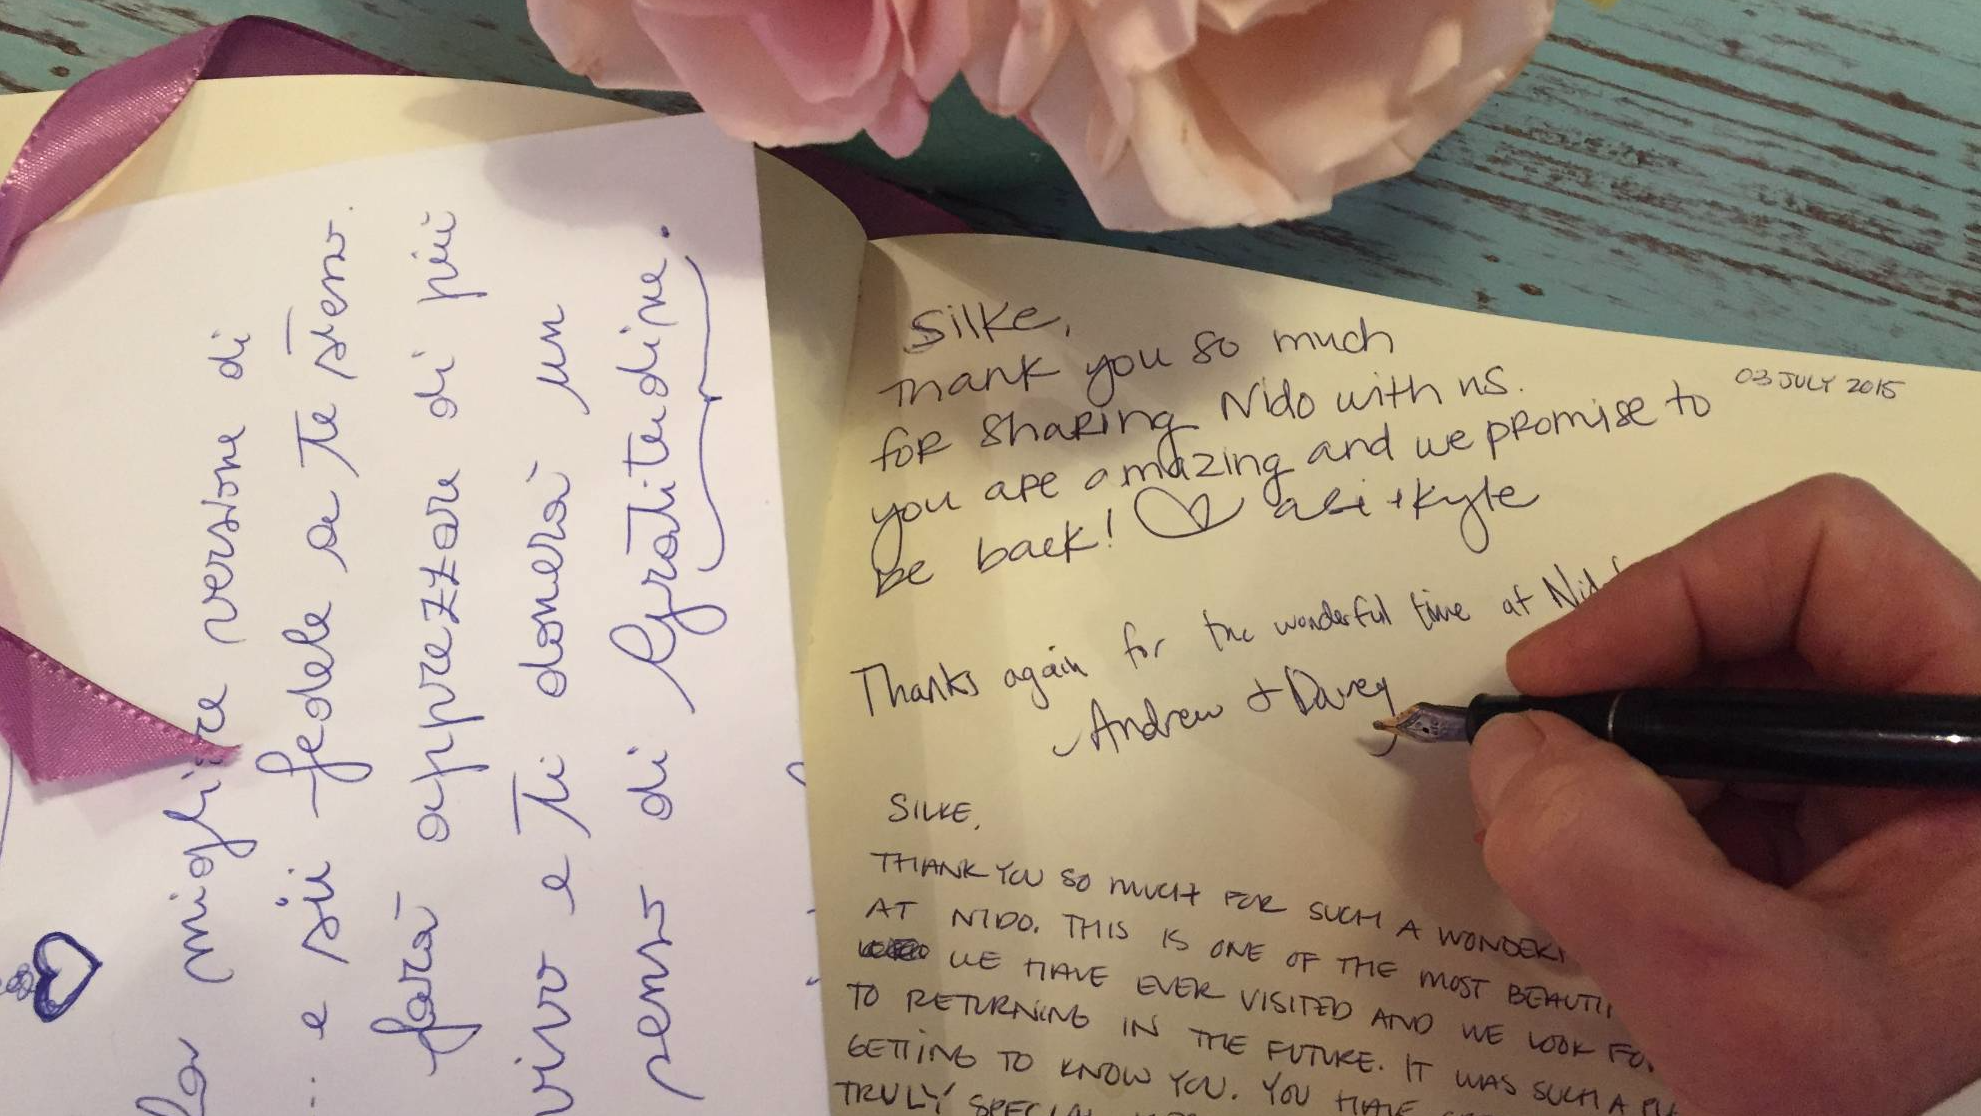 la migliore versione di
... e sii fedele a te stesso.
farà apprezzare di più
vivo e Ti donerà un
senso di Gratitudine.
Silke,
Thank you so much
for sharing Nido with us.
you are amazing and we promise to
be back! ali + Kyle
03 JULY 2015
Thanks again for the wonderful time at Nido
Andrew + Davey
SILKE,
THANK YOU SO MUCH FOR SUCH A
AT NIDO. THIS IS ONE OF THE MOST
WE HAVE EVER VISITED AND WE LOOK
TO RETURNING IN THE FUTURE. IT WAS SUCH A
GETTING TO KNOW YOU. YOU HAVE
TRULY